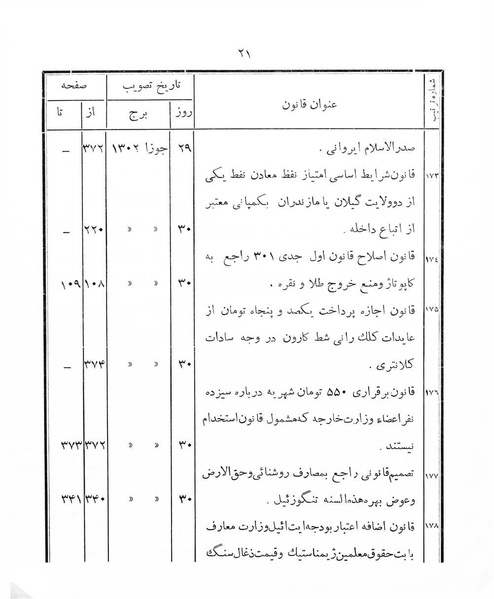 ۲۱
شماره ترتیب
عنوان قانون
تاریخ تصویب
صفحه
روز
برج
از
تا
صدرالاسلام ایروانی . ۲۹ جوزا ۱۳۰۲ ۳۷۲ –
۱۷۳ قانون شرایط اساسی امتیاز نفط معادن نفط یکی
از دوولایت گیلان یا مازندران بکمپانی معتبر
از اتباع داخله . ۳۰ » » ۲۲۰ –
۱۷٤ قانون اصلاح قانون اول جدی ۳۰۱ راجع به
کاپوتاژ ومنع خروج طلا و نقره . ۳۰ » » ۱۰۸ ۱۰۹
۱۷۵ قانون اجازه پرداخت یکصد و پنجاه تومان از
عایدات کلك رانی شط کارون در وجه سادات
کلانتری . ۳۰ » » ۳۷۴ –
۱۷۶ قانون برقراری ۵۵۰ تومان شهریه درباره سیزده
نفر اعضاء وزارت خارجه که مشمول قانون استخدام
نیستند . ۳۰ » » ۳۷۲ ۳۷۳
۱۷۷ تصمیم قانونی راجع بمصارف روشنائی وحق الارض
وعوض بهره هذه السنه تنگوزئیل . ۳۰ » » ۳۴۰ ۳۴۱
۱۷۸ قانون اضافه اعتبار بودجه ایت ائیل وزارت معارف
بابت حقوق معلمین ژیمناستیك و قیمت ذغال سنگ